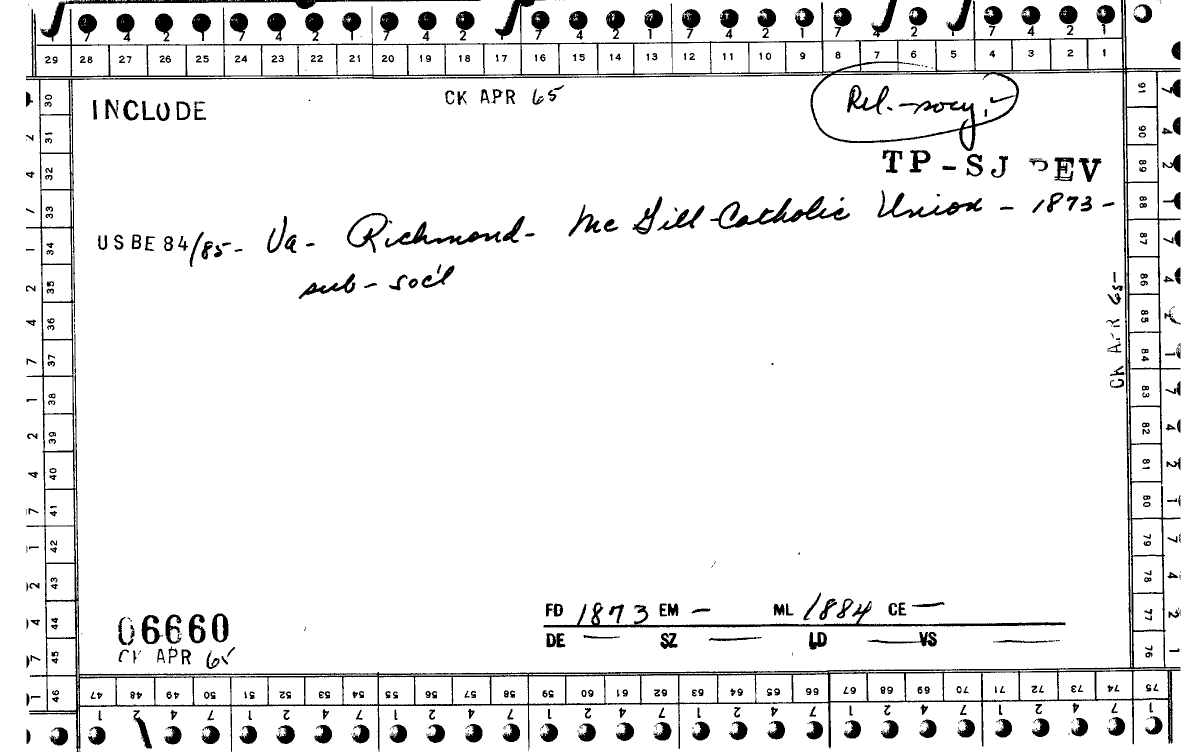 7 4 2 1 7 4 2 1 7 4 2 7 4 2 1 7 4 2 1 7 2 1 7 4 2 1
29 28 27 26 25 24 23 22 21 20 19 18 17 16 15 14 13 12 11 10 9 8 7 6 5 4 3 2 1
INCLUDE
CK APR 65
Rel.-socy.-
TP-SJ DEV
USBE 84/85- Va- Richmond- Mc Gill Catholic Union - 1873-
sub-soc'l
CK APR 65
FD 1873 EM - ML 1884 CE -
DE - SZ - LD - VS -
06660
CK APR 65
30 31 32 33 34 35 36 37 38 39 40 41 42 43 44 45 46
91 90 89 88 87 86 85 84 83 82 81 80 79 78 77 76
47 48 49 50 51 52 53 54 55 56 57 58 59 60 61 62 63 64 65 66 67 68 69 70 71 72 73 74 75
1 2 4 7 1 2 4 7 1 2 4 7 1 2 4 7 1 2 4 7 1 2 4 7 1 2 4 7 1